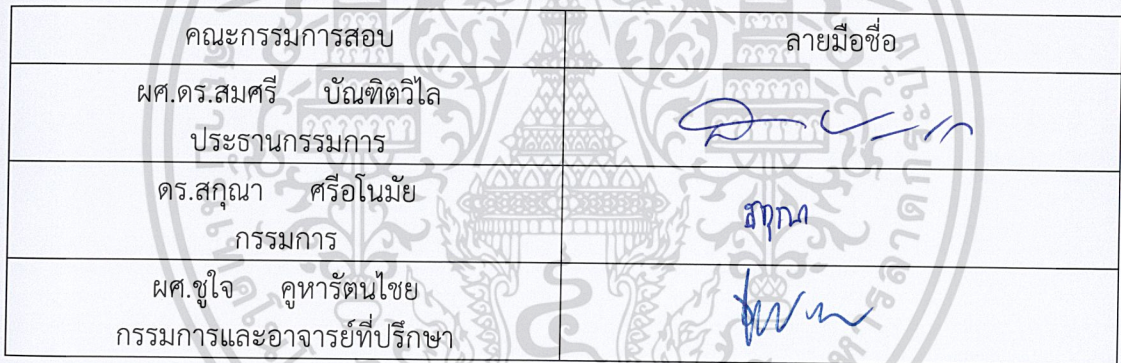 คณะกรรมการสอบ ลายมือชื่อ
ผศ.ดร.สมศรี บัณฑิตวิไล
ประธานกรรมการ
ดร.สกุณา ศรีอโนมัย
กรรมการ
สกุณา
ผศ.ชูใจ คูหารัตนไชย
กรรมการและอาจารย์ที่ปรึกษา